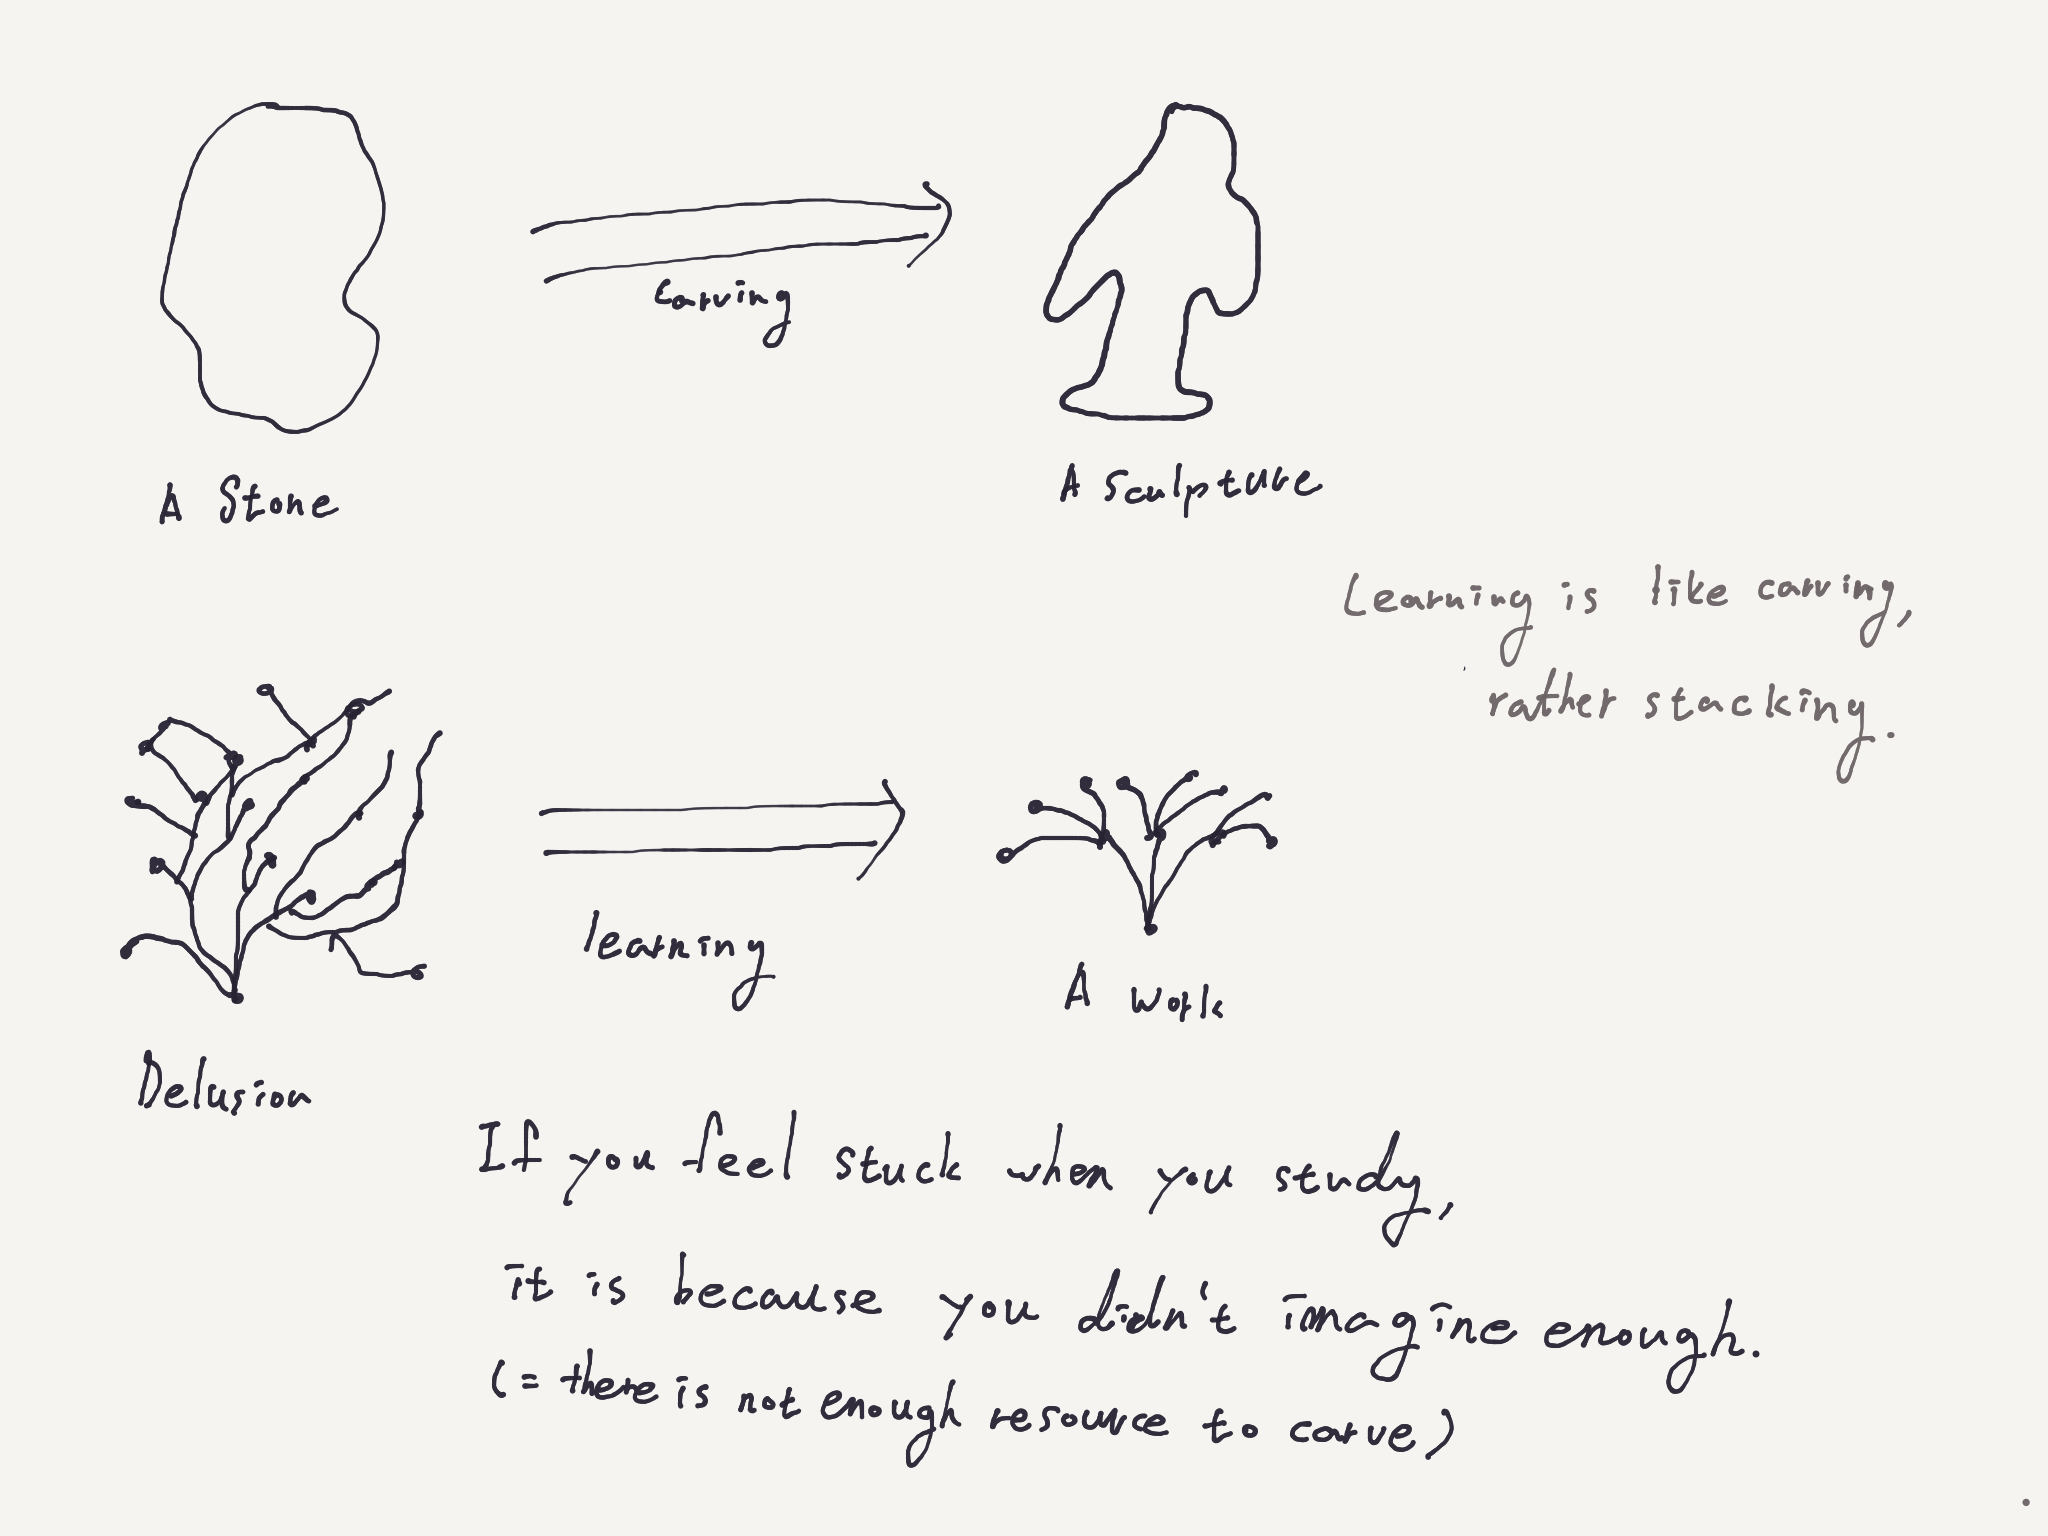 Carving
A Stone
A Sculpture
Learning is like carving,
rather stacking.
learning
A Work
Delusion
If you feel stuck when you study,
it is because you didn't imagine enough.
(= there is not enough resource to carve)